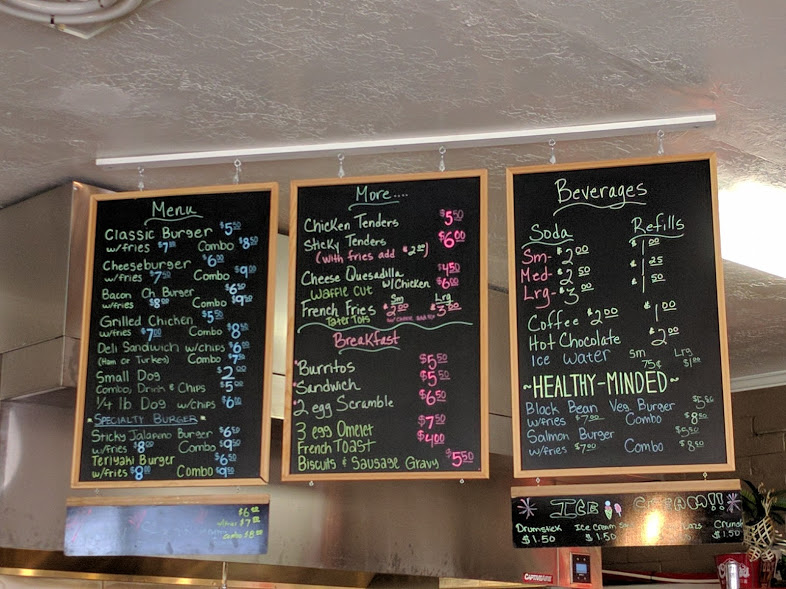 Menu
Classic Burger $5.50
w/fries $7.00 Combo $8.50
Cheeseburger $6.00
w/fries $7.50 Combo $9.00
Bacon Ch Burger $6.50
w/fries $8.00 Combo $9.50
Grilled Chicken $5.50
w/fries $7.00 Combo $8.50
Deli Sandwich w/chips $6.00
(Ham or Turkey) Combo $7.50
Small Dog $2.00
Combo, Drink & Chips $5.00
1/4 lb Dog w/chips $6.00
Specialty Burger
Sticky Jalapano Burger $6.50
w/fries $8.00 Combo $9.50
Teriyaki Burger $6.50
w/fries $8.00 Combo $9.50
$6.00
$7.00
Combo $8.50
More....
Chicken Tenders $5.50
Sticky Tenders $6.00
(with fries add $2.00)
Cheese Quesadilla $4.50
w/Chicken $6.00
Waffle Cut
Sm Lrg
French Fries $2.00 $3.00
Tater Tots
Breakfast
Burritos $5.50
Sandwich $5.50
2 egg Scramble $6.50
3 egg Omelet $7.50
French Toast $4.00
Biscuits & Sausage Gravy $5.50
Beverages
Soda Refills
Sm- $2.00 $1.00
Med- $2.50 $1.25
Lrg- $3.00 $1.50
Coffee $2.00 $1.00
Hot Chocolate $2.00
Ice Water Sm 75¢ Lrg $1.00
~HEALTHY-MINDED~
Black Bean Veg Burger $5.50
w/fries $7.00 Combo $8.50
Salmon Burger $5.50
w/fries $7.00 Combo $8.50
ICE CREAM!!
Drumstick Ice Cream Crunch
$1.50 $1.50 $1.50
CAPTIVEAIRE